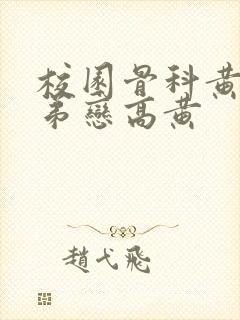 校園骨科黃
弟戀高黃
趙弋飛